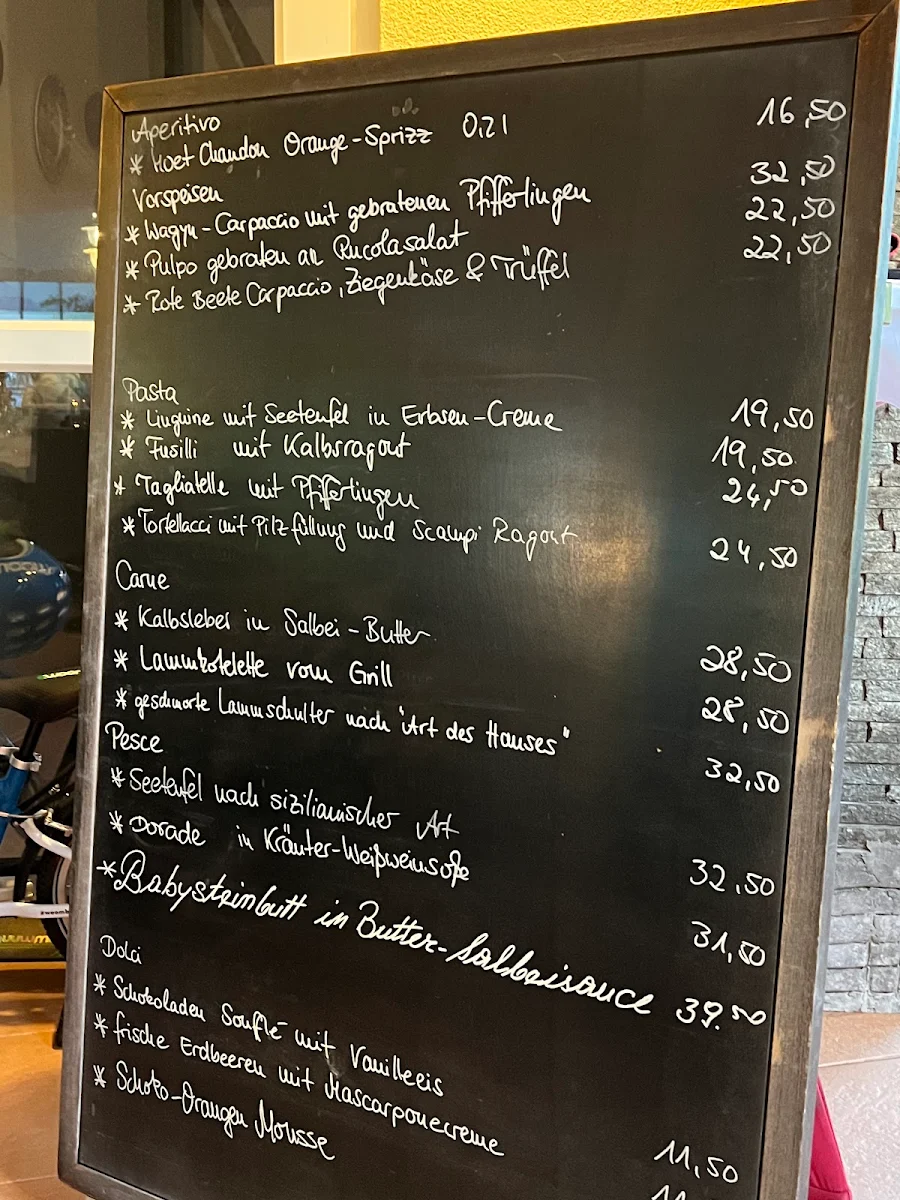 Aperitivo
* Moet Chandon Orange-Sprizz 0,2 l 16,50
Vorspeisen
* Wagyu-Carpaccio mit gebratenen Pfifferlingen 32,50
* Pulpo gebraten an Rucolasalat 22,50
* Rote Beete Carpaccio, Ziegenkäse & Trüffel 22,50
Pasta
* Linguine mit Seeteufel in Erbsen-Creme 19,50
* Fusilli mit Kalbsragout 19,50
* Tagliatelle mit Pfifferlingen 24,50
* Tortellacci mit Pilzfüllung und Scampi Ragout 24,50
Carne
* Kalbsleber in Salbei-Butter 28,50
* Lammkotelette vom Grill 28,50
* geschmorte Lammschulter nach "Art des Hauses" 32,50
Pesce
* Seeteufel nach sizilianischer Art 32,50
* Dorade in Kräuter-Weißweinsoße 31,50
* Babysteinbutt in Butter-Salbeisauce 39.50
Dolci
* Schokoladen Souflé mit Vanilleeis 11,50
* frische Erdbeeren mit Mascarponecreme
* Schoko-Orangen Mousse